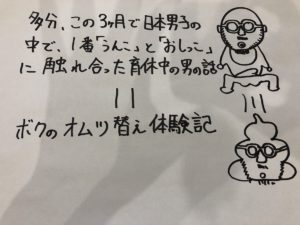 多分、この3ヶ月で日本男子の
中で、1番「うんこ」と「おしっこ」
に触れ合った育休中の男の話
||
ボクのオムツ替え体験記